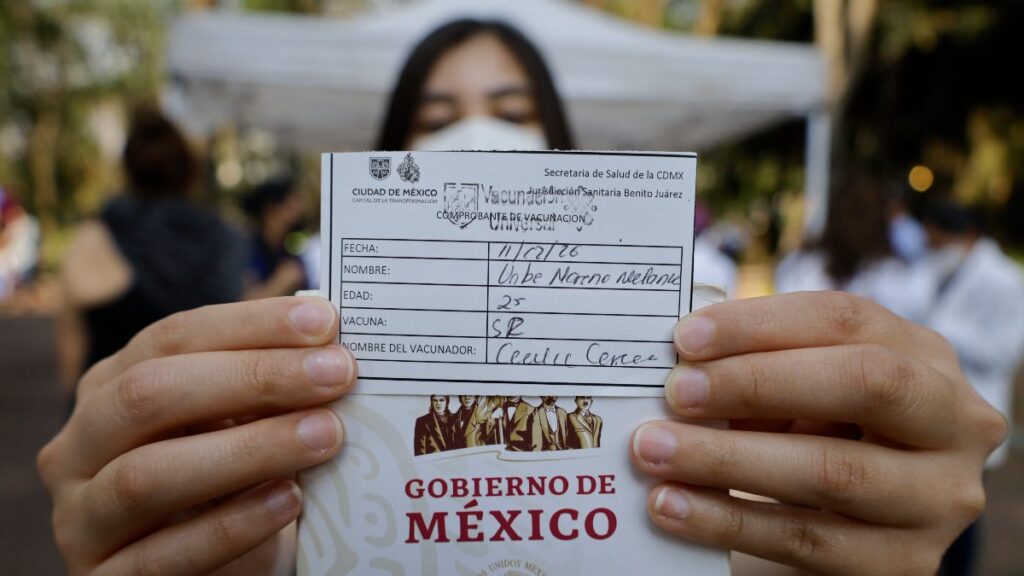 Secretaria de Salud de la CDMX
CIUDAD DE MÉXICO
CAPITAL DE LA TRANSFORMACIÓN
Jurisdicción Sanitaria Benito Juárez
Vacunación
Universal
COMPROBANTE DE VACUNACION
FECHA:
NOMBRE: Uribe Moreno Melanie
EDAD: 25
VACUNA: SR
NOMBRE DEL VACUNADOR:
GOBIERNO DE
MÉXICO
UNIDOS